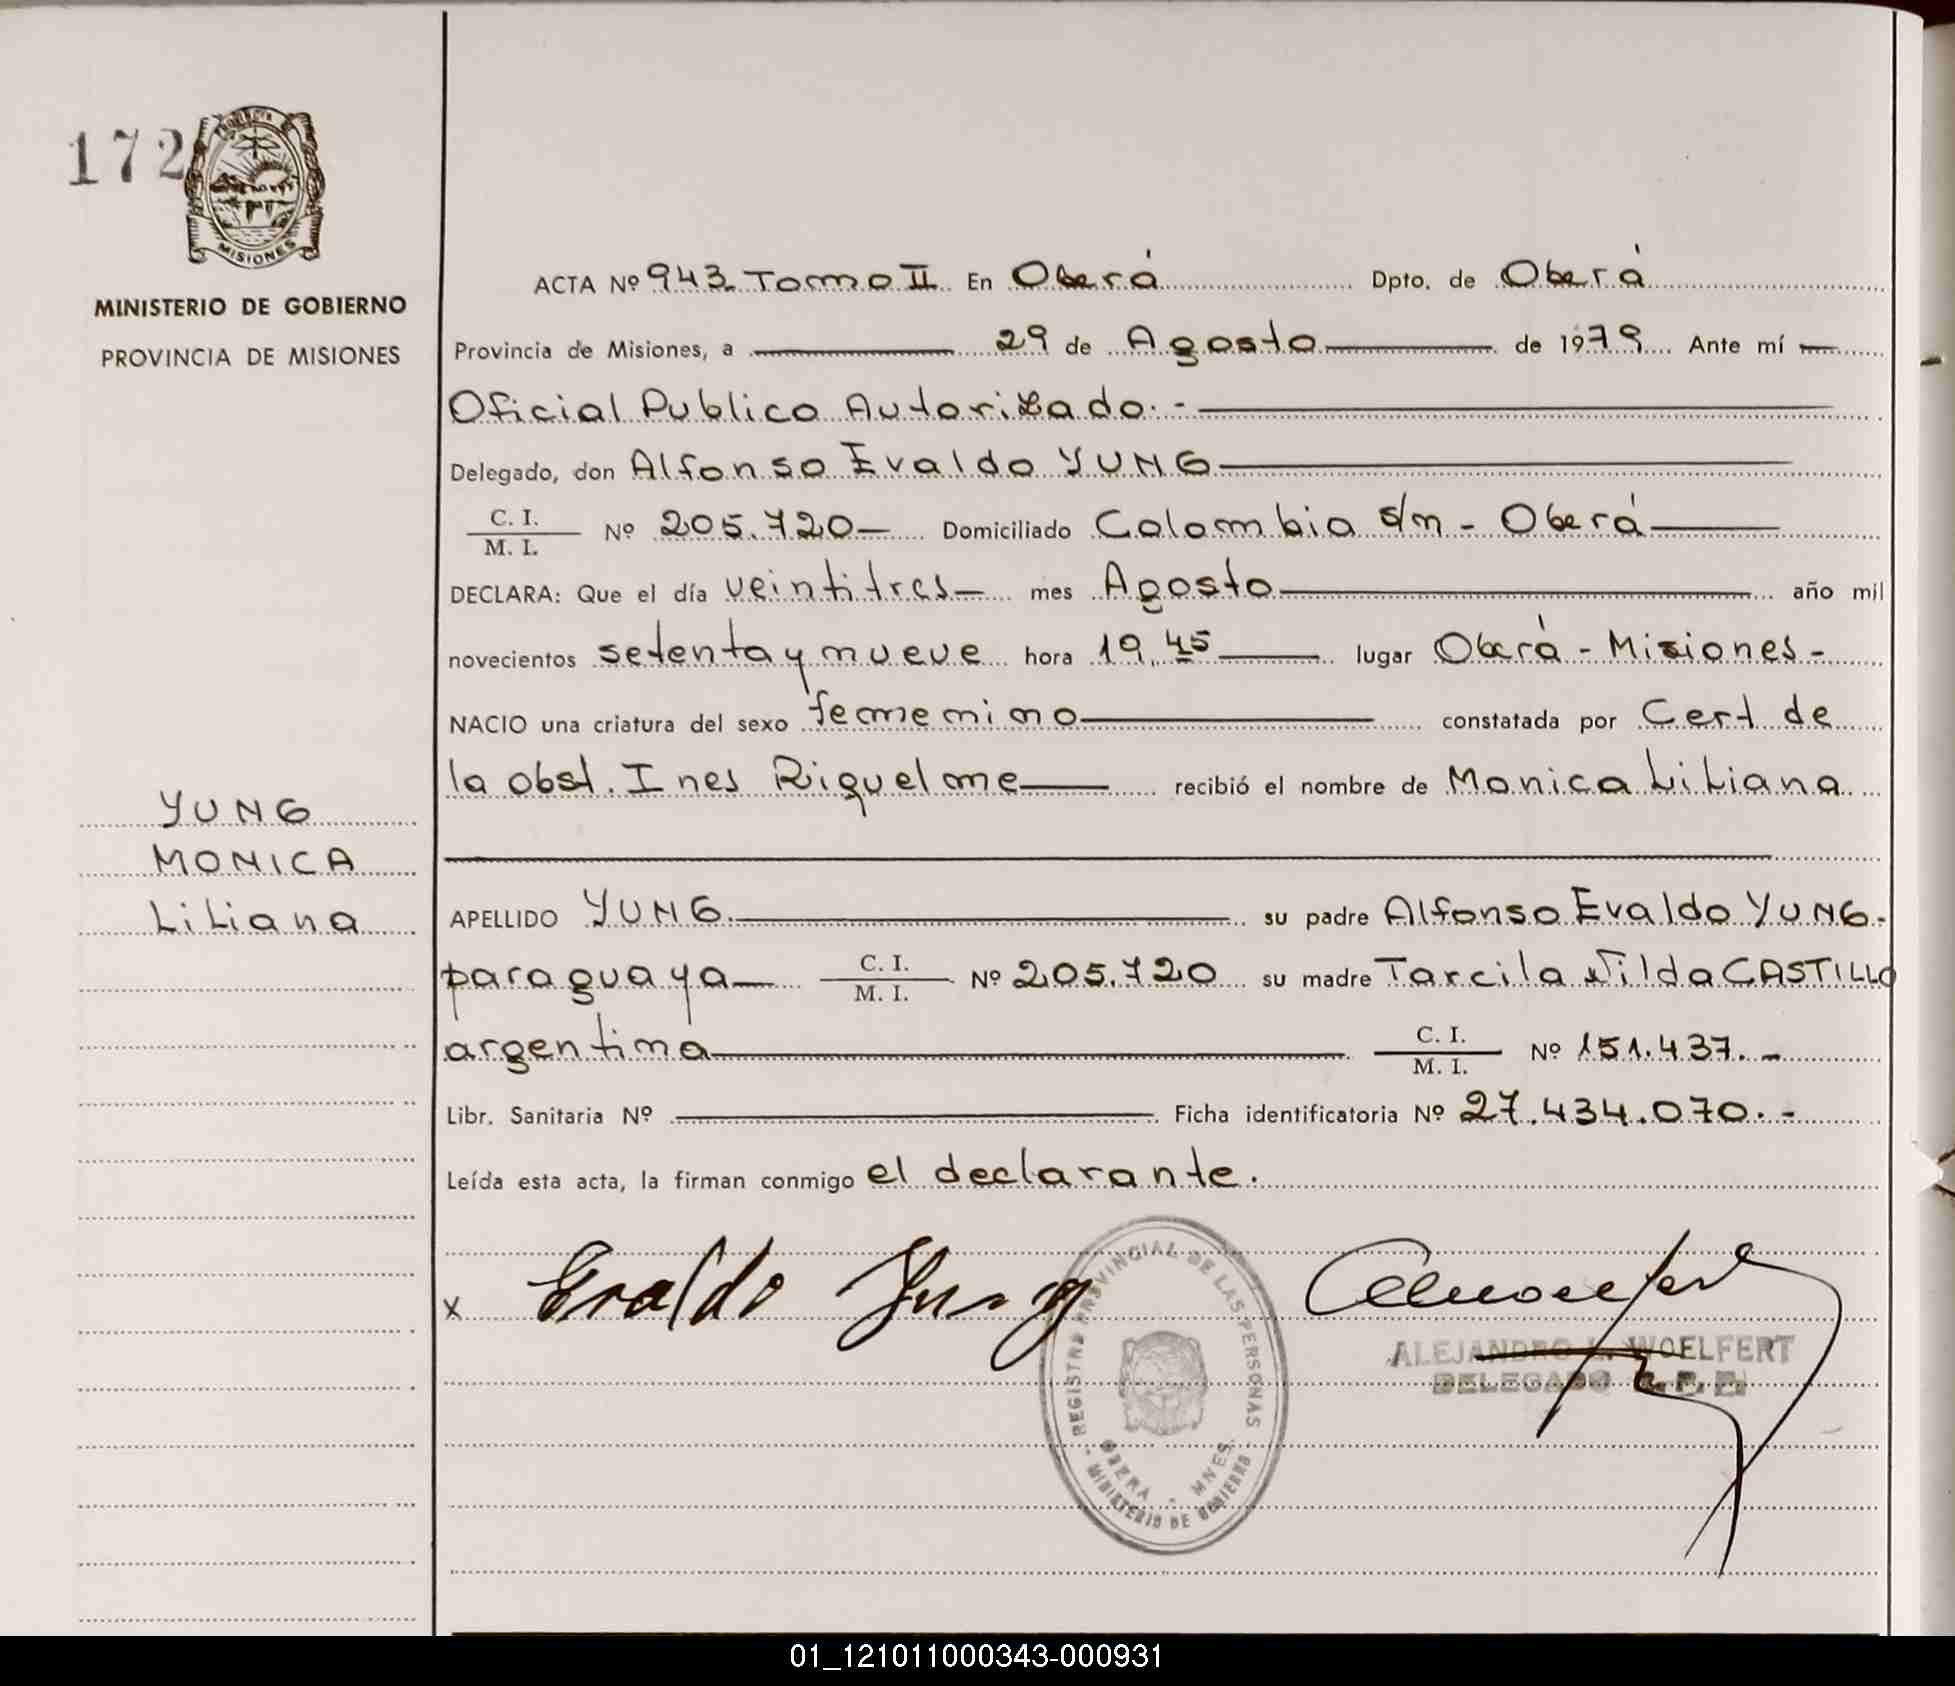 172
MISIONES
MINISTERIO DE GOBIERNO
PROVINCIA DE MISIONES
ACTA Nº 943 Tomo II En Oberá Dpto. de Oberá
Provincia de Misiones, a 29 de Agosto de 1979 Ante mí
Oficial Publico Autorizado.-
Delegado, don Alfonso Evaldo YUNG
C. I.
M. I.
Nº 205.720 Domiciliado Colombia s/n - Oberá
DECLARA: Que el día veintitres mes Agosto año mil
novecientos setenta y nueve hora 19,45 lugar Oberá - Misiones -
NACIO una criatura del sexo femenino constatada por Cert de
la obst. Ines Riquelme recibió el nombre de Monica Liliana
YUNG
MONICA
Liliana
APELLIDO YUNG su padre Alfonso Evaldo YUNG.
paraguaya C. I. M. I. Nº 205.720 su madre Tarcila Nilda CASTILLO
argentina C. I. M. I. Nº 151.437.-
Libr. Sanitaria Nº Ficha identificatoria Nº 27.434.070.-
Leída esta acta, la firman conmigo el declarante.
x Evaldo Jung
REGISTRO PROVINCIAL DE LAS PERSONAS
OBERA - MNES.
- MINISTERIO DE GOBIERNO -
ALEJANDRO L. WOELFERT
DELEGADO R. P. P.
01_121011000343-000931